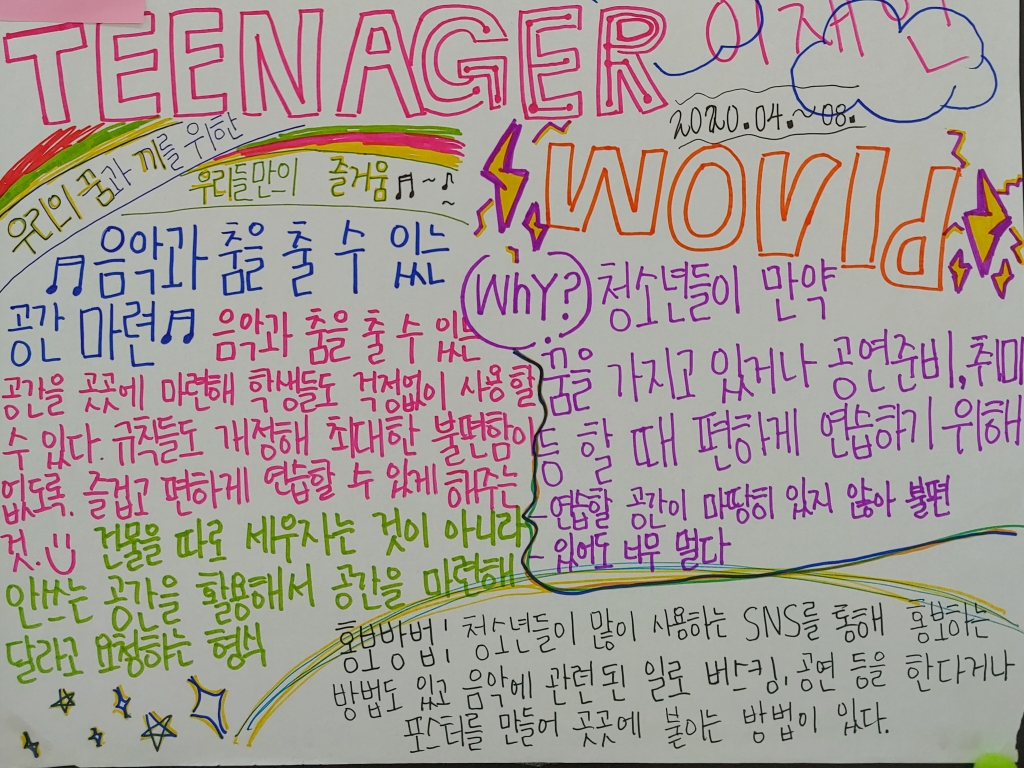 TEENAGER
2020.04.~08.
우리의 꿈과 끼를 위한
우리들만의 즐거움
음악과 춤을 출 수 있는
공간 마련
음악과 춤을 출 수 있는
공간을 곳곳에 마련해 학생들도 걱정없이 사용할
수 있다. 규칙들도 개정해 최대한 불편함이
없도록. 즐겁고 편하게 연습할 수 있게 해주는
것.
건물을 따로 세우자는 것이 아니라
안쓰는 공간을 활용해서 공간을 마련해
달라고 요청하는 형식
Why?
청소년들이 만약
꿈을 가지고 있거나 공연준비, 취미
등 할 때 편하게 연습하기 위해
-연습할 공간이 마땅히 있지 않아 불편
- 있어도 너무 멀다
홍보방법! 청소년들이 많이 사용하는 SNS를 통해 홍보하는
방법도 있고 음악에 관련된 일로 버스킹, 공연 등을 한다거나
포스터를 만들어 곳곳에 붙이는 방법이 있다.